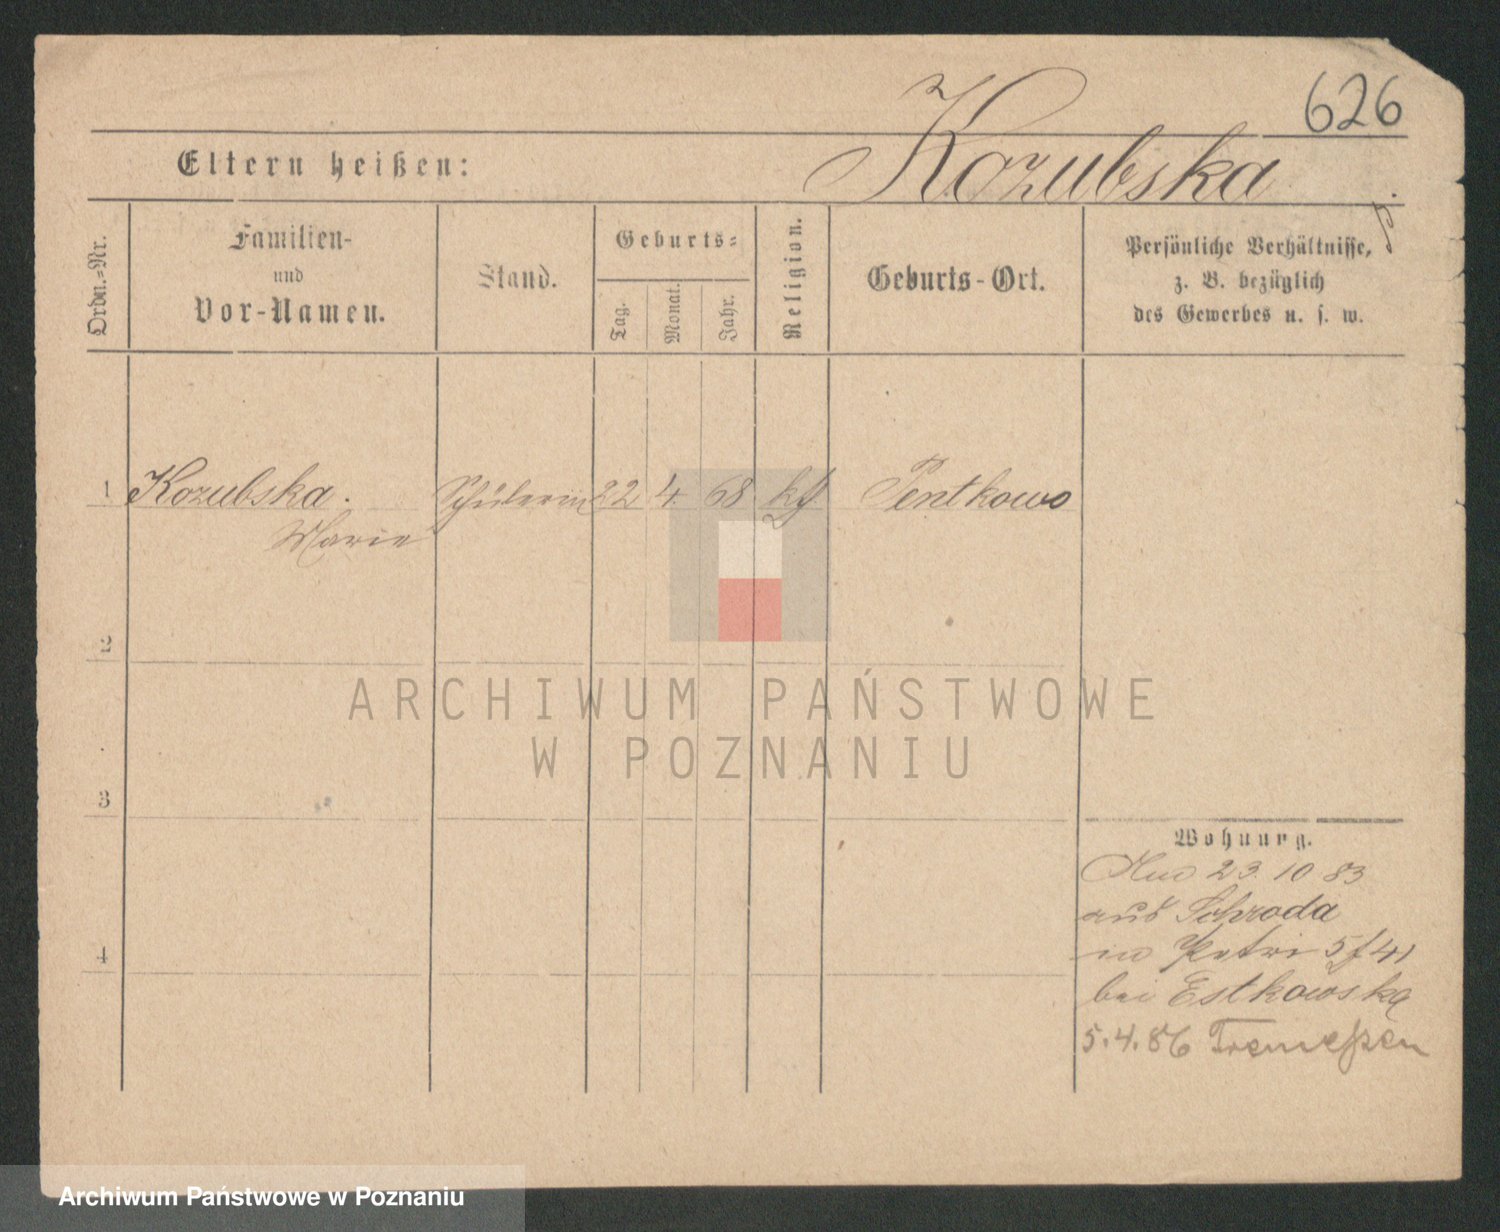 626
Kozubska
Eltern heißen:
Ordn.-Nr.
Familien-
und
Vor-Namen.
Stand.
Geburts-
Tag.
Monat.
Jahr.
Religion.
Geburts-Ort.
Persönliche Verhältnisse,
z. B. bezüglich
des Gewerbes u. s. w.
1 Kozubska. Schülerin 22 4. 68 kth Pentkowo
Marie
2
ARCHIWUM PAŃSTWOWE
W POZNANIU
3
Wohnung.
23. 10 83
aus Schroda
in Petri 5 f 41
bei Estkowska
4
5.4.86 Tremeßen
Archiwum Państwowe w Poznaniu